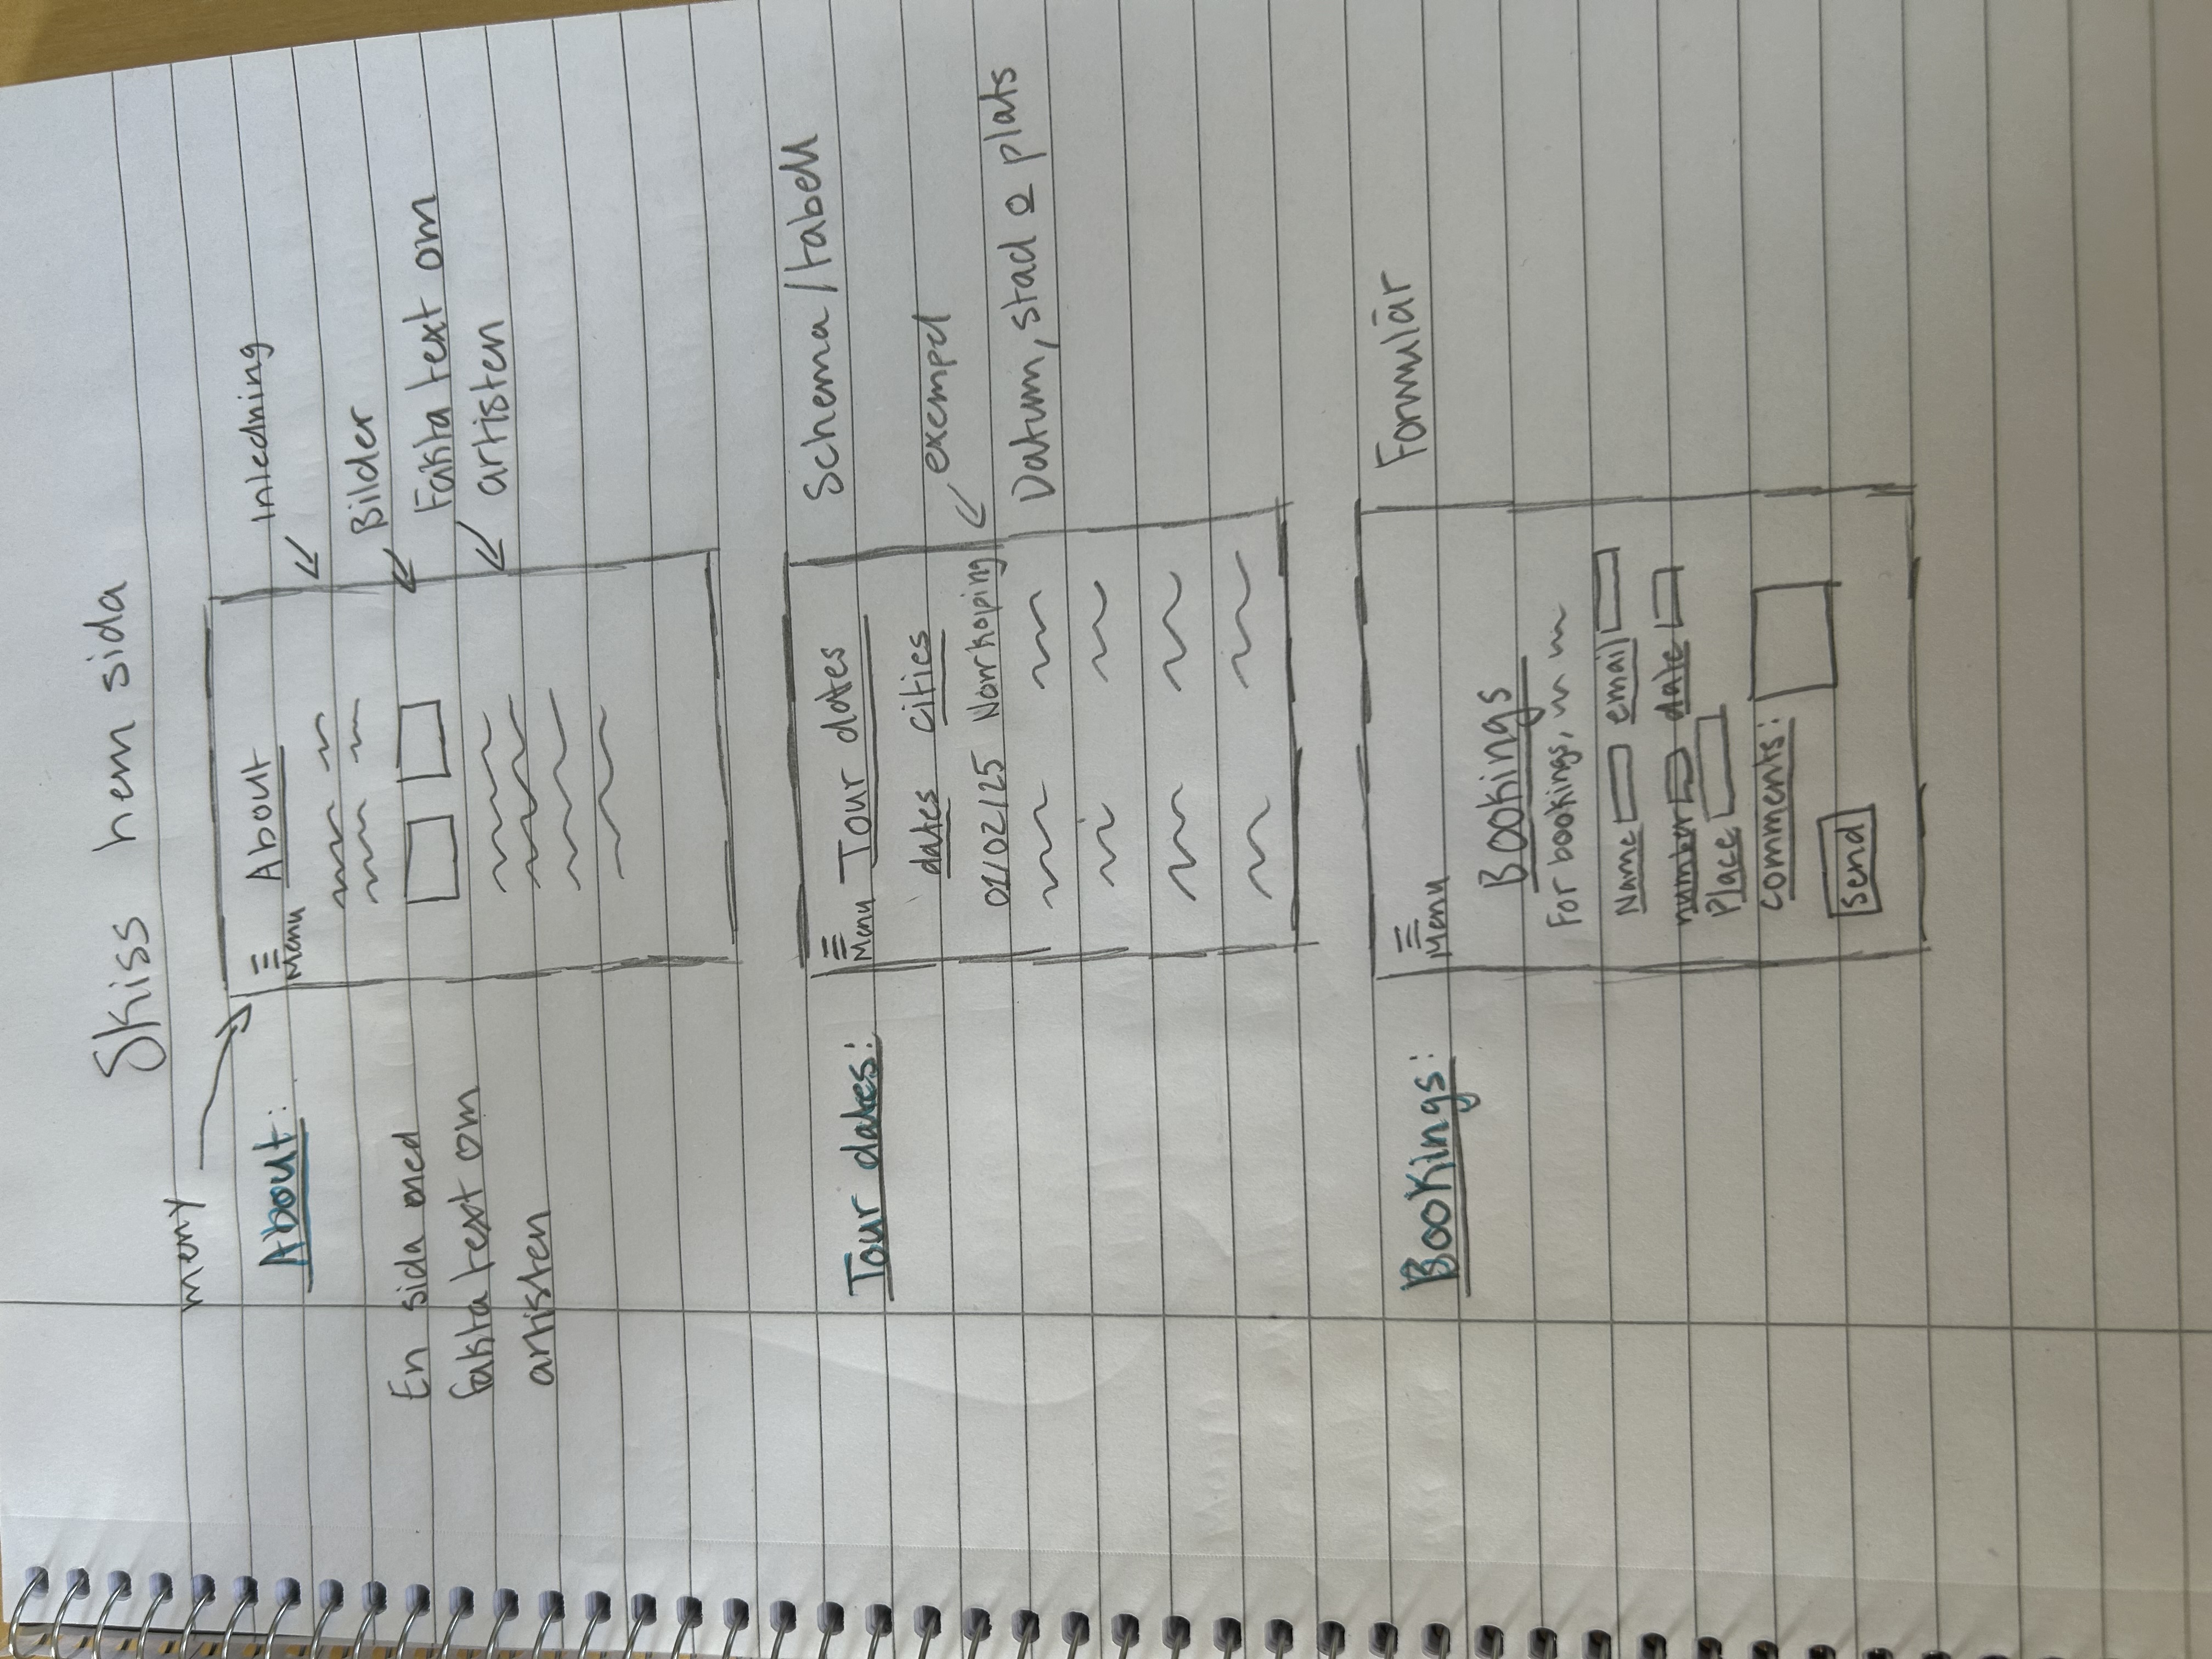 Skiss hem sida
meny
About:
Menu
About
Inledning
Bilder
Fakta text om
artisten
En sida med
fakta text om
artisten
Tour dates:
Menu
Tour dates
Schema/tabell
dates cities
01/02/25 Norrkoping
exempel
Datum, stad o plats
Bookings:
Menu
Formulär
Bookings
For bookings,
Name email
number date
Place
comments:
send